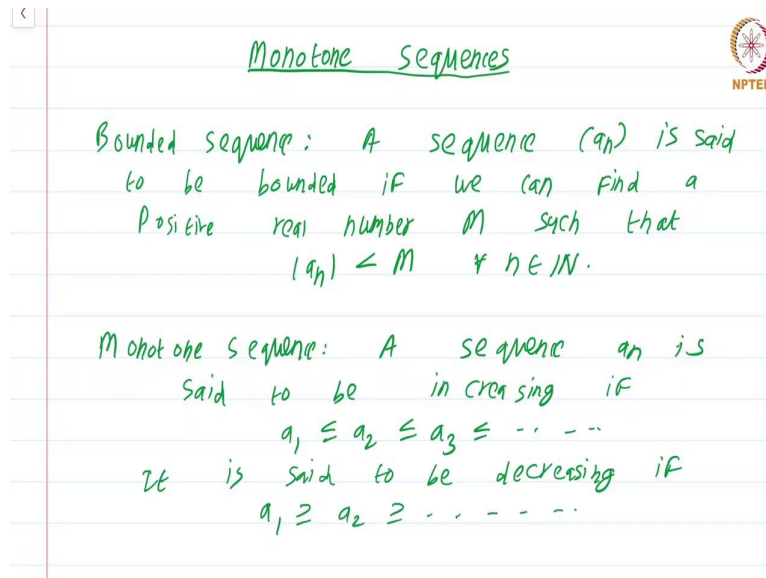 Monotone Sequences
NPTEL
Bounded sequence: A sequence (an) is said
to be bounded if we can find a
Positive real number M such that
|an| < M ∀ n ∈ IN.
Monotone sequence: A sequence an is
said to be increasing if
a₁ ≤ a₂ ≤ a₃ ≤ .. - --
It is said to be decreasing if
a₁ ≥ a₂ ≥ . . - - - -.